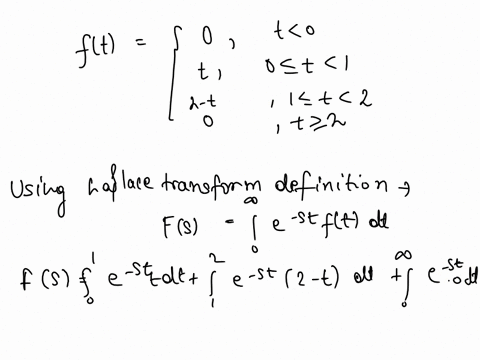 f(t) = { 0 , t<0
t, 0≤t<1
2-t , 1≤t<2
0 , t≥2
Using Laplace transform definition →
F(s) = ∫₀^∞ e^-st f(t) dt
f(s) = ∫₀^1 e^-st t dt + ∫₁^2 e^-st (2-t) dt + ∫₀^∞ e^-st .0 dt